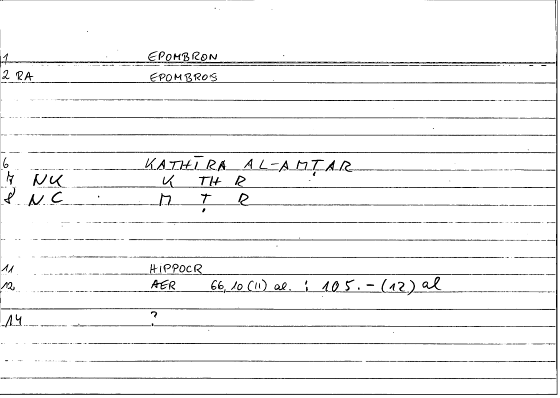 1 EPOMBRON
2 RA EPOMBROS
6 KATHĪRA AL-AMṬAR
7 NK K TH R
8 NC M Ṭ R
11 HIPPOCR
12 AER 66,10 (11) al. : 105.-(12) al
14 ?